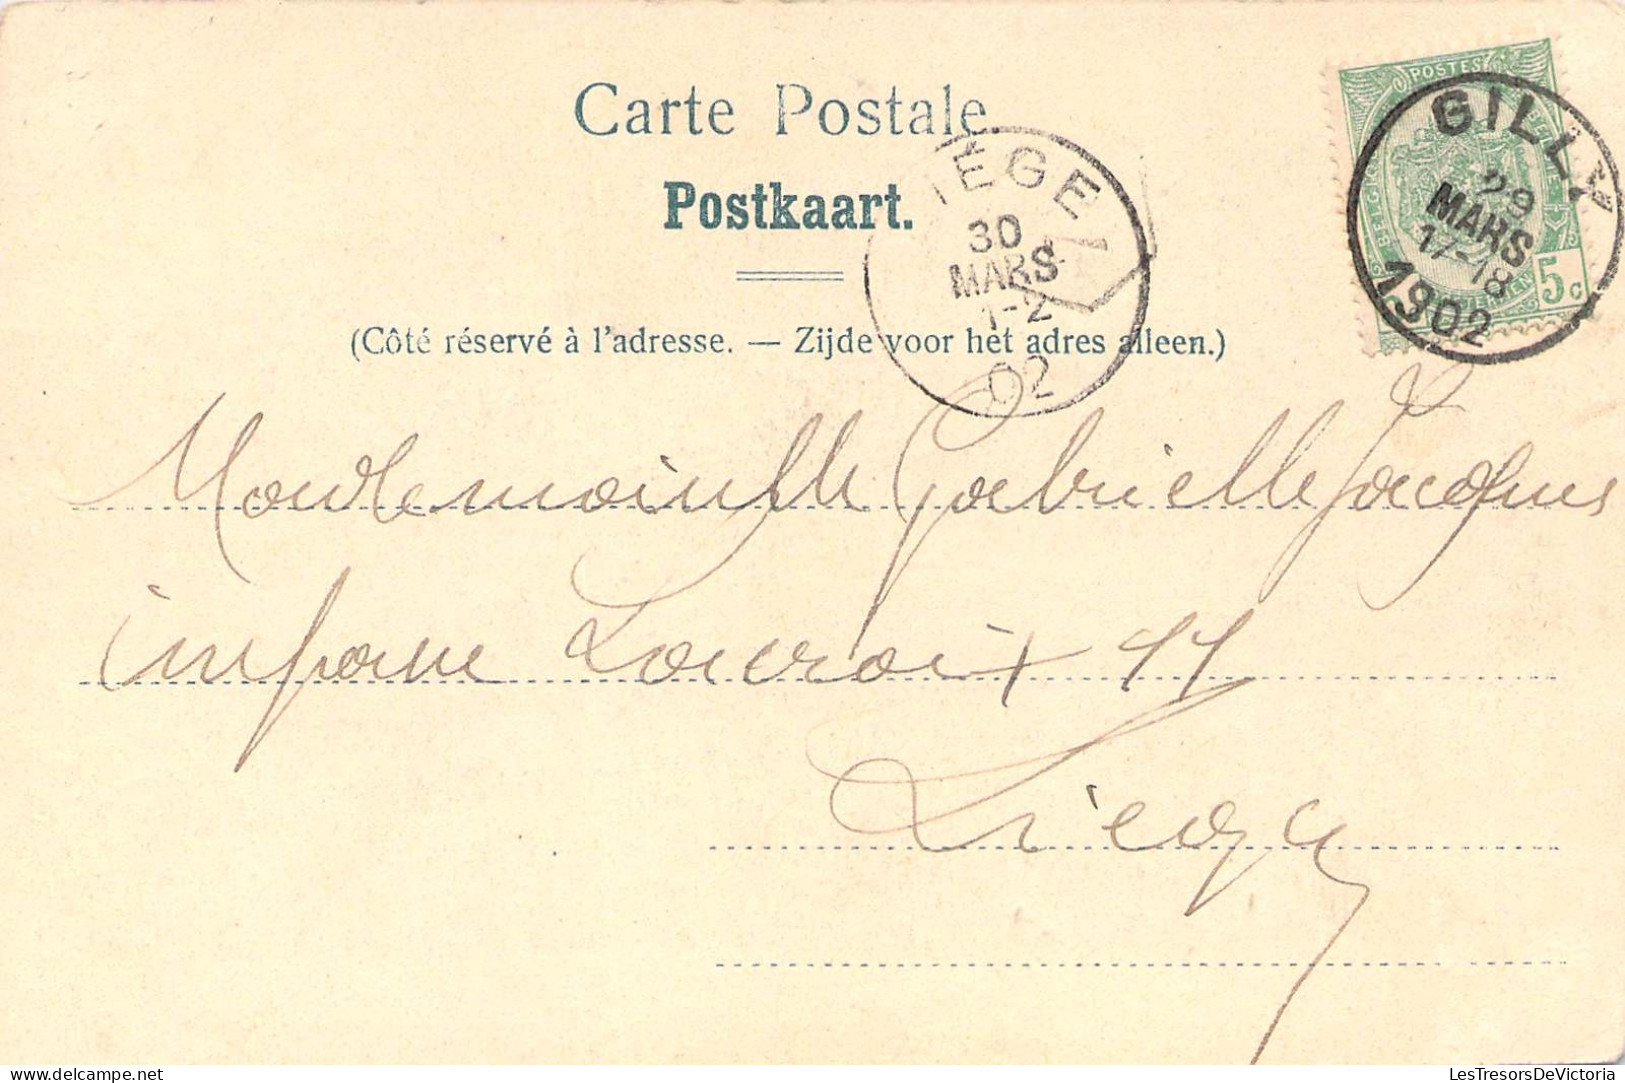 Carte Postale.
Postkaart.
(Côté réservé à l'adresse. — Zijde voor het adres alleen.)
IÈGE
30
MARS
1-2
02
POSTES
BELGIQUE
5c
GILLY
29
MARS
17-18
1902
Mademoiselle Gabrielle Jacques
impasse Lacroix 11
Liège
LesTresorsDeVictoria